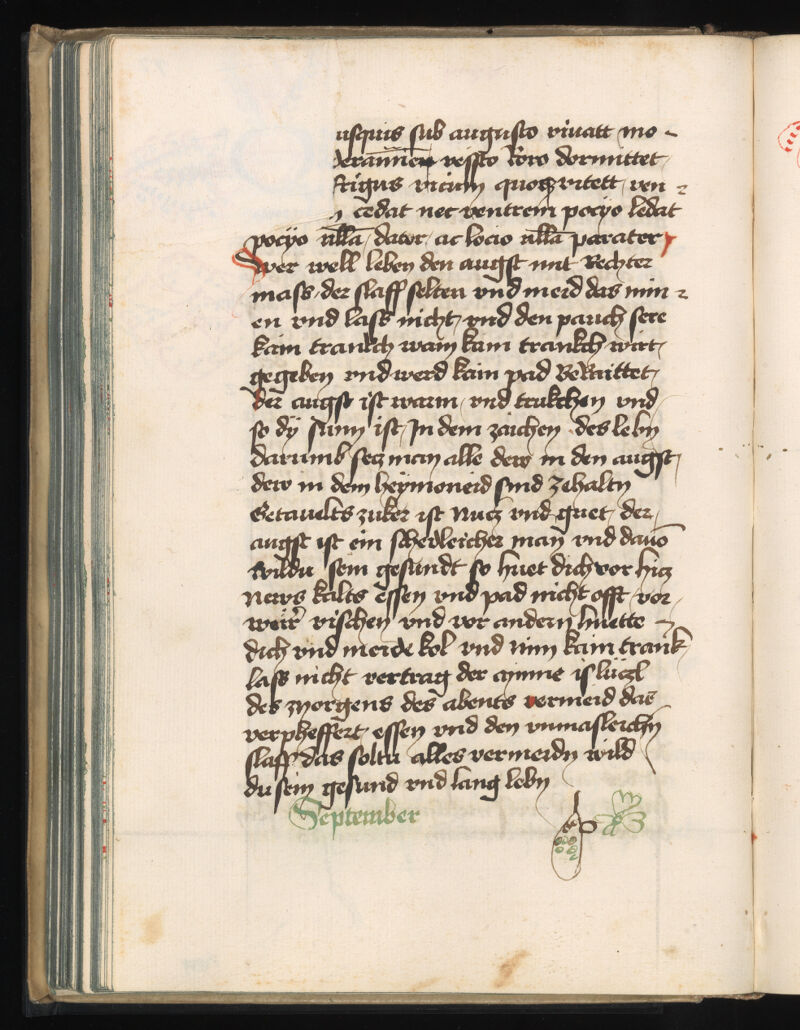 usquis sub augusto viuatt mo-
deramnien resto Raro dormittet
frigus vicium quoq vitett ven
cedat nec ventrem pocyo ledat
pocyo nlla dator ac locio nlla parater
Wer well leben den augst mit Rechter
mass der slaff selten vnd meid das min
en vnd lass nicht vnd den pauch sere
kain tranckh wain kain tranckh wirt
gegeben vnd werd kain pad Beraittet
der augst ist warm vnd trukchen vnd
so dÿ sunn ist In dem zaichen des lebn
darumb secz man alle dew in den augst
dew in dem heymoneid sind zehaltn
Getauelts zuker ist Nucz vnd guet der
augst ist ein schedleicher man vnd dauo
wildu sein gesundt so huet dich vor hicz
news kalts essen vnd pad nicht offt vor
weir vischen vnd vor andern huette
dich vnd meide kol vnd nim kain trank
lass nicht vertrag der mynne is luczl
des morgens des abents vermeid das
verpheffert essen vnd den vnmasleichn
slaff das soltu alles vermeidn wild
du sein gesund vnd lang lebn
September